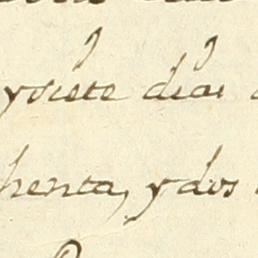 ysiete dias
henta, y dos